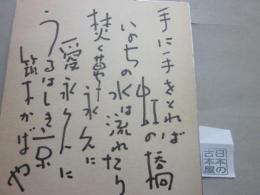 手に手をとれば
虹の橋
いのちの水は流れたり
焚く夢永久に
愛永久に
うるはしき京
築かばや
日本の
古本屋